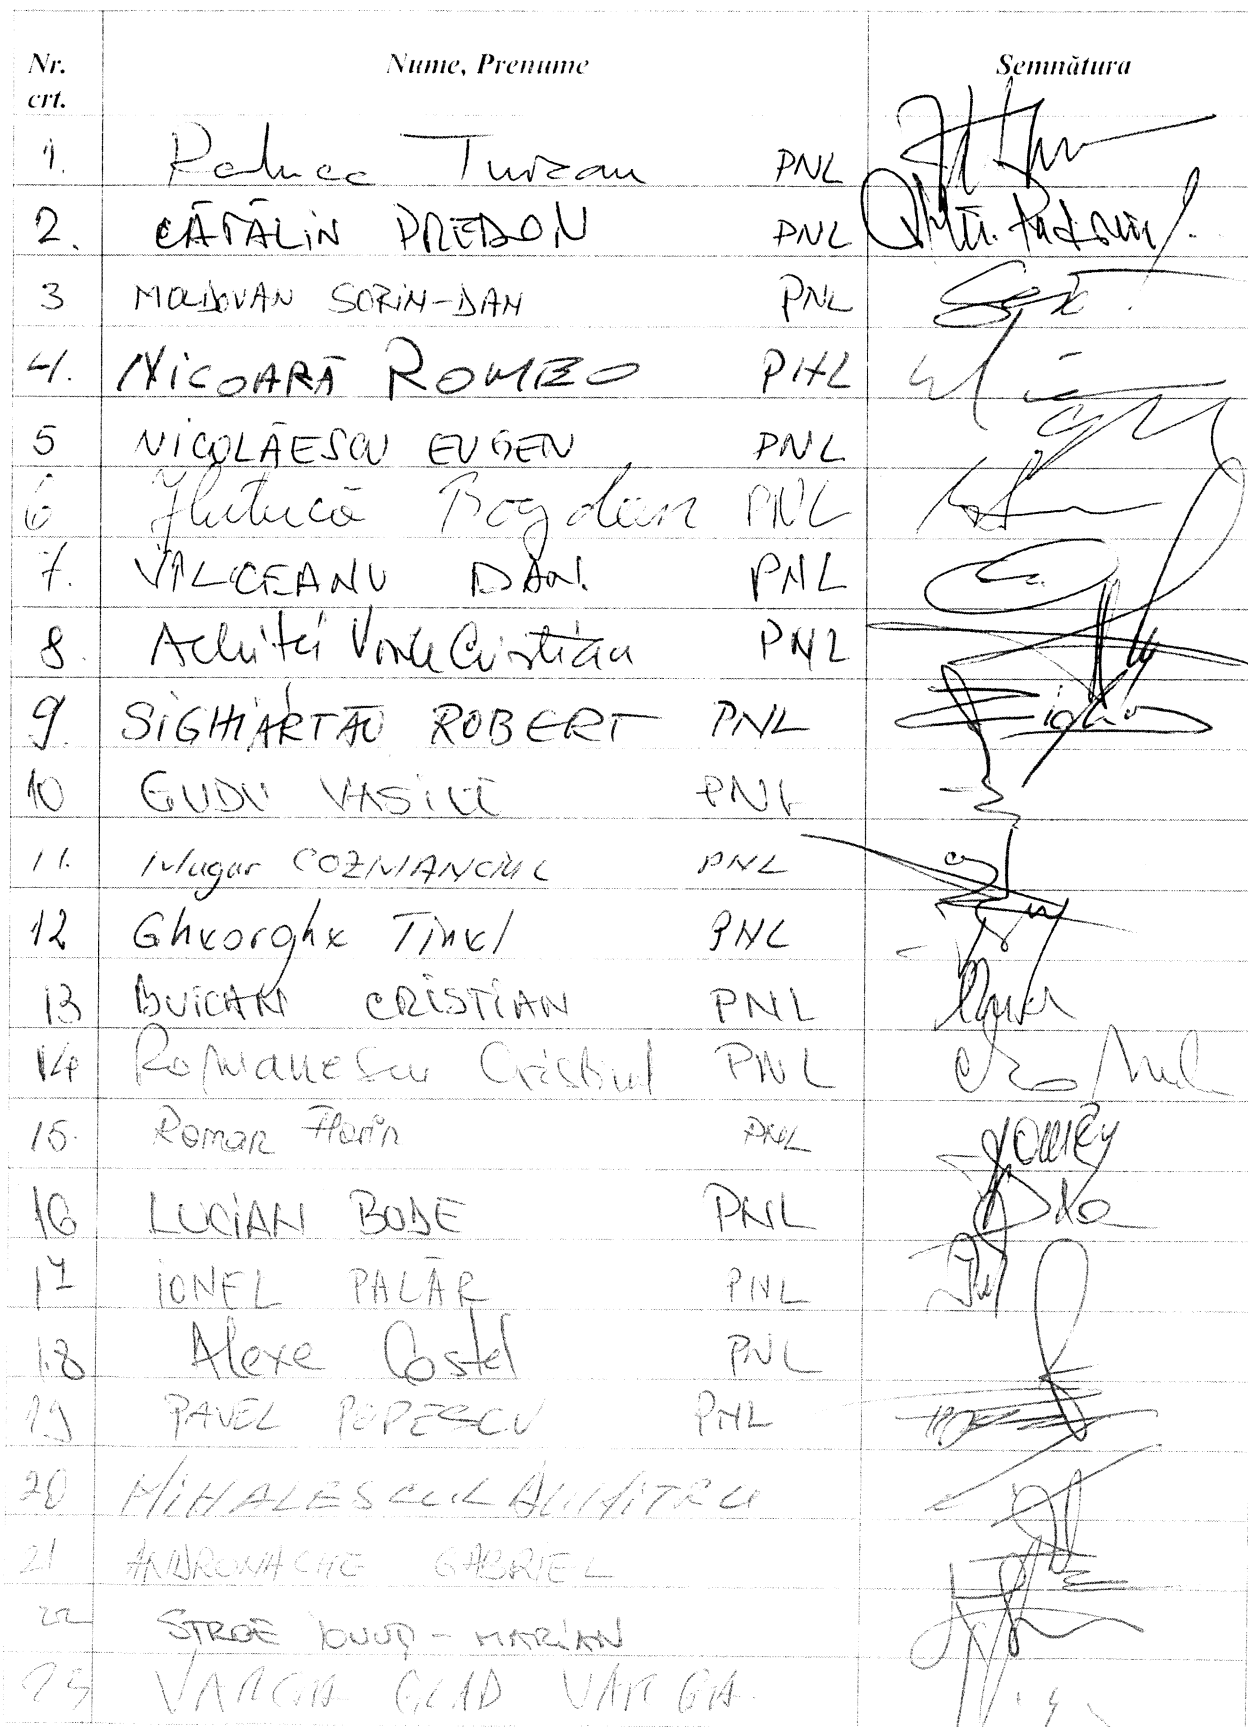 Nr. crt. Nume, Prenume Semnătura
1. Raluca Turcan PNL
2. CĂTĂLIN PREDOIU PNL
3 MOLDOVAN SORIN-DAN PNL
4. NICOARĂ ROMEO PNL
5 NICOLĂESCU EUGEN PNL
6 Huțucă Bogdan PNL
7. VÎLCEANU DAN. PNL
8. Achiței Vasile Cristian PNL
9. SIGHIARTĂU ROBERT PNL
10 GUDU VASILE PNL
11. Mugur COZMANCIUC PNL
12 Gheorghe Tinel PNL
13 BUICAN CRISTIAN PNL
14 Romanescu Cristinel PNL
15. Roman Florin PNL
16 LUCIAN BODE PNL
17 IONEL PALĂR PNL
18 Alexe Costel PNL
19 PAVEL POPESCU PNL
20 MIHALESCUL DUMITRU
21 ANDRONACHE GABRIEL
22 STROE IONUȚ-MARIAN
23 VARGA GLAD VARGA